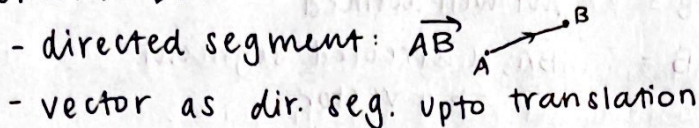 - directed segment: \overrightarrow{AB} A B
- vector as dir. seg. upto translation